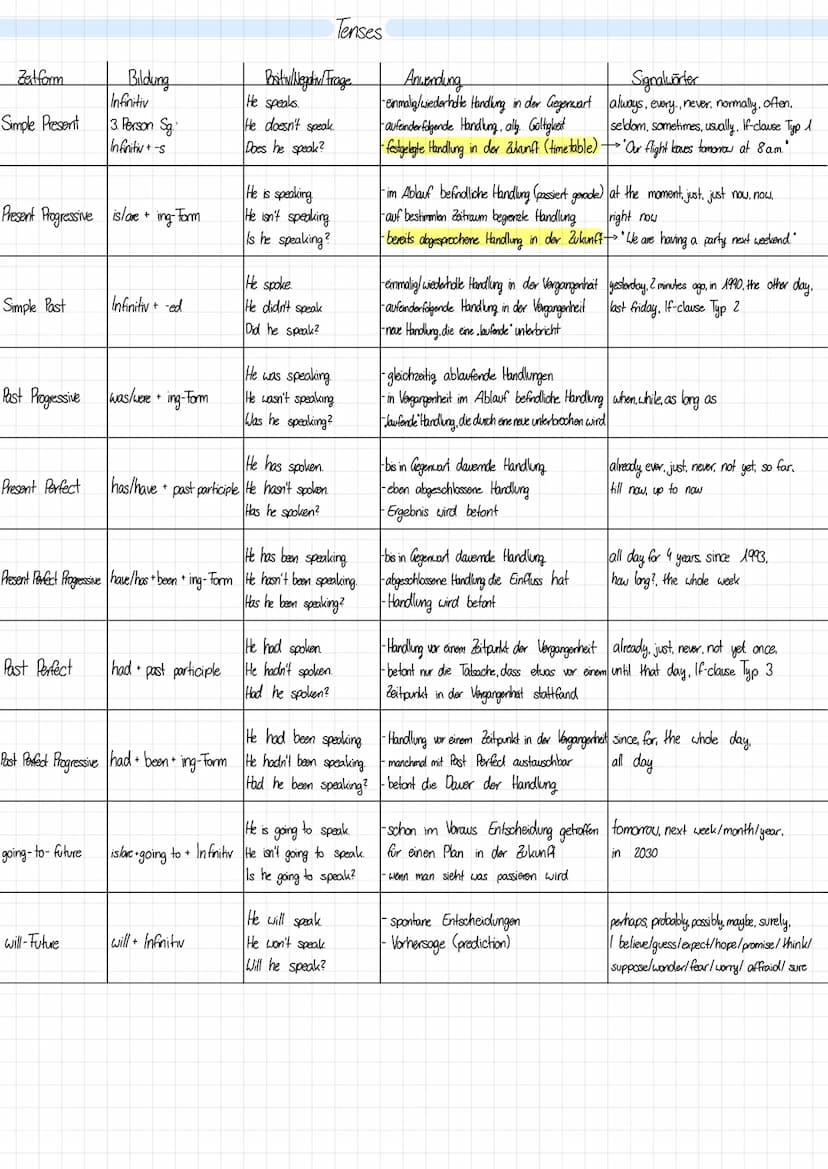 Tenses
Zeitform Bildung Positiv/Negativ/Frage Anwendung Signalwörter
Infinitiv He speaks. -einmalig/wiederholte Handlung in der Gegenwart always, every.., never, normally, often,
Simple Present 3. Person Sg.: He doesn't speak -aufenderfolgende Handlung, allg. Gültigkeit seldom, sometimes, usually, If-clause Typ 1
Infinitiv + -s Does he speak? -festgelegte Handlung in der Zukunft (timetable) → "Our flight leaves tomorrow at 8 a.m."
He is speaking -im Ablauf befindliche Handlung (passiert gerade) at the moment, just, just now, now,
Present Progressive is/are + ing-Form He isn't speaking -auf bestimmten Zeitraum begrenzte Handlung right now
Is he speaking? -bereits abgesprochene Handlung in der Zukunft → "We are having a party next weekend."
He spoke. -einmalig/wiederholte Handlung in der Vergangenheit yesterday, 2 minutes ago, in 1990, the other day,
Simple Past Infinitiv + -ed He didn't speak -aufenderfolgende Handlung in der Vergangenheit last friday, If-clause Typ 2
Did he speak? -neue Handlung, die eine „laufende" unterbricht
He was speaking. -gleichzeitig ablaufende Handlungen
Past Progressive was/were + ing-Form He wasn't speaking -in Vergangenheit im Ablauf befindliche Handlung when, while, as long as
Was he speaking? -„laufende" Handlung, die durch eine neue unterbrochen wird
He has spoken. -bis in Gegenwart dauernde Handlung already ever, just, never, not yet, so far,
Present Perfect has/have + past participle He hasn't spoken. -eben abgeschlossene Handlung till now, up to now
Has he spoken? -Ergebnis wird betont
He has been speaking. -bis in Gegenwart dauernde Handlung all day for 4 years, since 1993,
Present Perfect Progressive have/has + been + ing-Form He hasn't been speaking. -abgeschlossene Handlung die Einfluss hat how long?, the whole week
Has he been speaking? -Handlung wird betont
He had spoken. -Handlung vor einem Zeitpunkt der Vergangenheit already, just, never, not yet once,
Past Perfect had + past participle He hadn't spoken. -betont nur die Tatsache, dass etwas vor einem until that day, If-clause Typ 3
Had he spoken? Zeitpunkt in der Vergangenheit stattfand
He had been speaking. -Handlung vor einem Zeitpunkt in der Vergangenheit since, for, the whole day,
Past Perfect Progressive had + been + ing-Form He hadn't been speaking. -manchmal mit Past Perfect austauschbar all day
Had he been speaking? -betont die Dauer der Handlung
He is going to speak. -schon im Voraus Entscheidung getroffen tomorrow, next week/month/year,
going-to-future is/are + going to + Infinitiv He isn't going to speak. für einen Plan in der Zukunft in 2030
Is he going to speak? -wenn man sieht was passieren wird
He will speak - spontane Entscheidungen perhaps, probably, possibly, maybe, surely,
will-Future will + Infinitiv He won't speak - Vorhersage (prediction) I believe/guess/expect/hope/promise/think/
Will he speak? suppose/wonder/fear/worry/affraid/sure